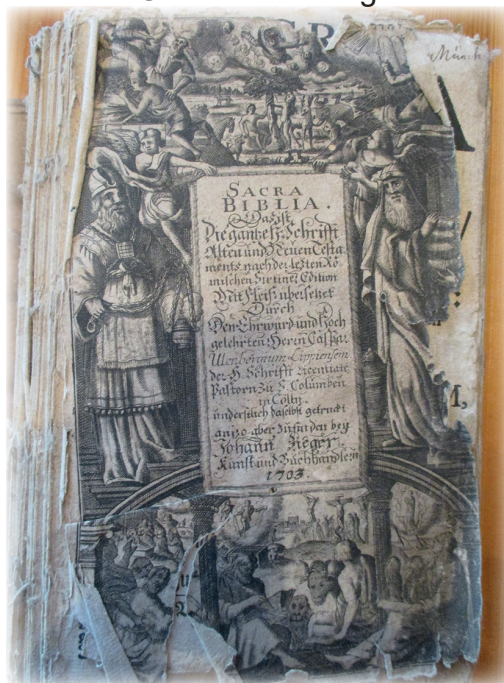 Münch
SACRA
BIBLIA.
Das ist
Die gantze H. Schrifft
Alten und Neuen Testa
ments nach der letzten Rö
mischen Sixtiner Edition
Mit fleis ubersetzet
Durch
Den Ehrwurd und Hoch
gelehrten Herin Caspar.
Ulenbergium Lippiensem
der H. Schrifft Licentiate
Pastorn zu S. Columben
in Cölln.
und erstlich daselbst getruckt
anizo aber zufinden bey
Johann
Kunst und Buchhandlern
1703.